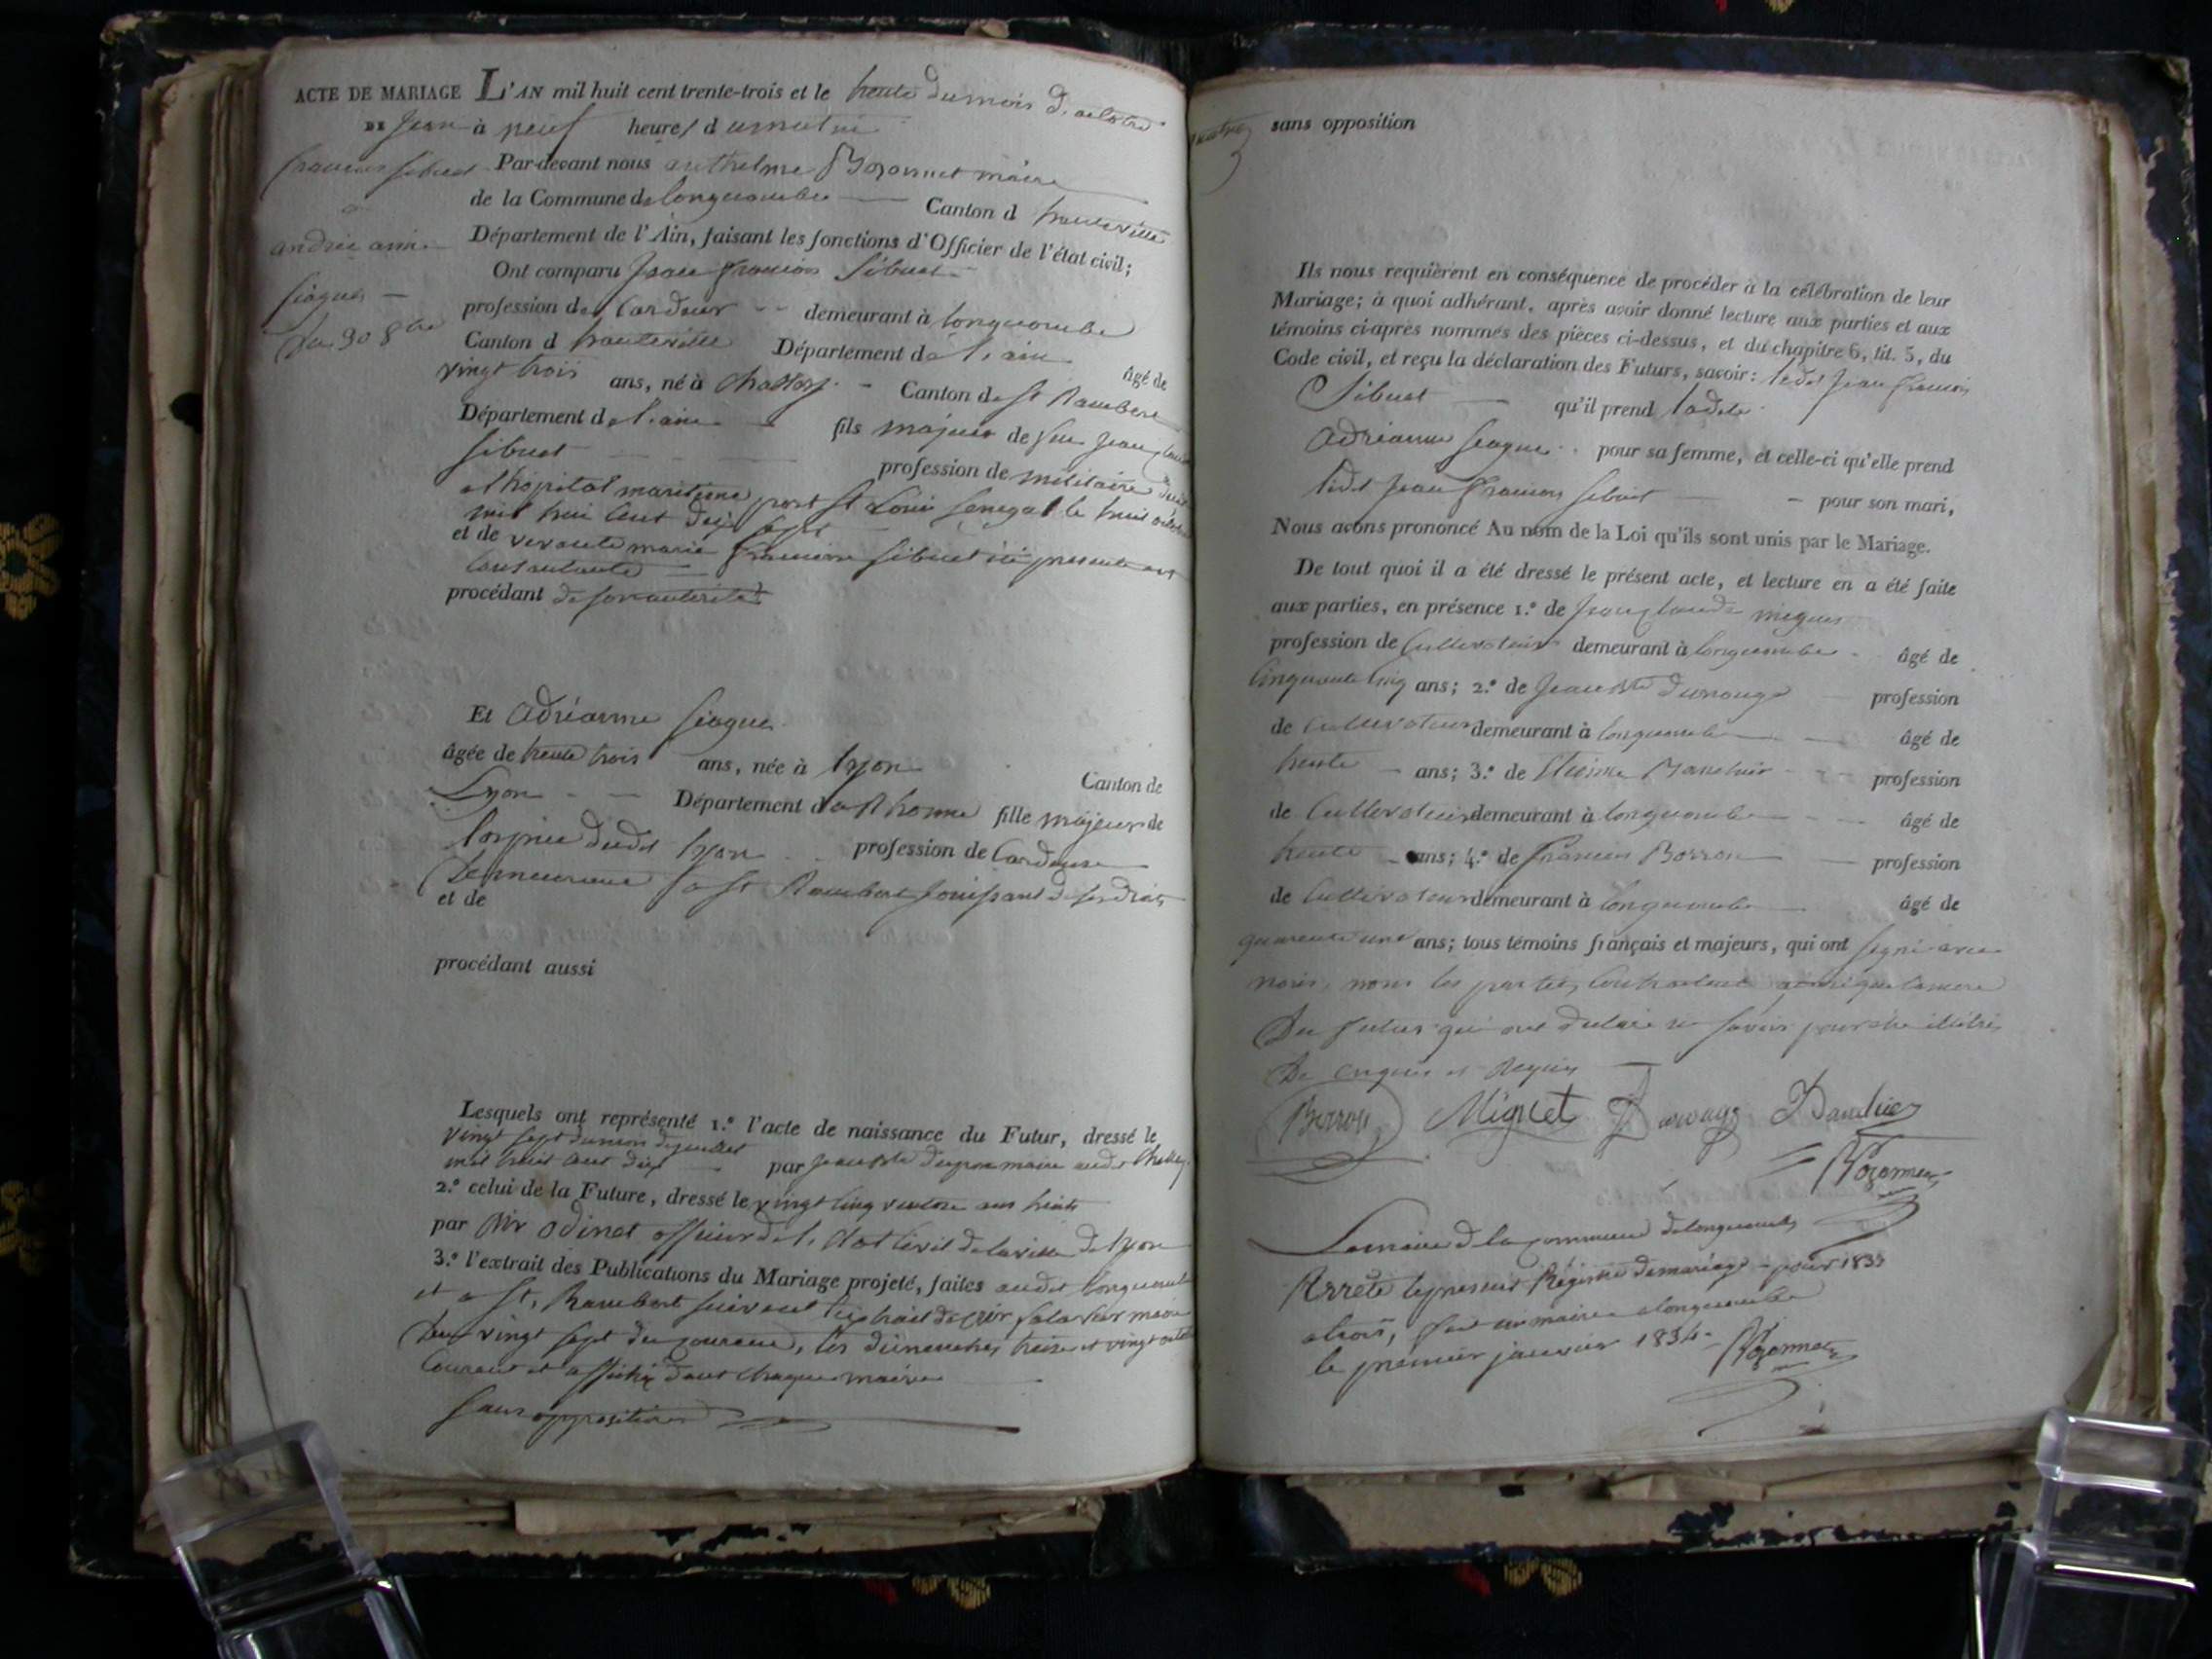 ACTE DE MARIAGE L'AN mil huit cent trente-trois et le trente du mois d'octobre
DE Jean à neuf heures d u matin
francois sibuet Par-devant nous anthelme Bozonnet maire
à de la Commune de longecombe Canton d hauteville
andrée anne Département de l'Ain, faisant les fonctions d'Officier de l'état civil;
Ont comparu Jean francois Sibuet
siague
profession de Cardeur demeurant à longecombe
du 30 8bre Canton d hauteville Département de l'ain âgé de
vingt trois ans, né à Chaley Canton de st Rambert
Département de l'ain fils majeur de feu Jean
sibuet profession de militaire
a l'hopital maritime port st Louis senegal le huit
mil huit cent dix sept
et de vivante marie francoise sibuet ici presente et
consentante
procédant de son autorité
Et Adrianne siague
âgée de trente trois ans, née à lyon Canton de
Lyon Département du Rhonne fille majeure de
l'ospice dudit lyon profession de Cardeuse
Demeurant a st Rambert jouissant de ses droits
et de
procédant aussi
Lesquels ont représenté 1.° l'acte de naissance du Futur, dressé le
vingt sept du mois de juillet
mil huit cent dix par Jean Bte maire audit Chaley
2.° celui de la Future, dressé le vingt cinq ventose an huit
par Mr Odinet officier de l'etat Civil de la ville de lyon
3.° l'extrait des Publications du Mariage projeté, faites audit longecombe
et a st, Rambert suivant l'extrait de Mr maire
du vingt sept du courant, les dimanches treize et vingt
Courant et affiché dant chaque mairie
sans opposition
sans opposition
Ils nous requièrent en conséquence de procéder à la célébration de leur
Mariage; à quoi adhérant, après avoir donné lecture aux parties et aux
témoins ci-après nommés des pièces ci-dessus, et du chapitre 6, tit. 5, du
Code civil, et reçu la déclaration des Futurs, savoir: ledit Jean francois
Sibuet qu'il prend ladite
Adrianne siague pour sa femme, et celle-ci qu'elle prend
ledit Jean francois sibuet pour son mari,
Nous avons prononcé Au nom de la Loi qu'ils sont unis par le Mariage.
De tout quoi il a été dressé le présent acte, et lecture en a été faite
aux parties, en présence 1.° de Jean Claude miguet
profession de Cultivateur demeurant à longecombe âgé de
Cinquante cinq ans; 2.° de Jean Bte profession
de Cultivateur demeurant à longecombe âgé de
trente ans; 3.° de Etienne profession
de Cultivateur demeurant à longecombe âgé de
trente ans; 4.° de francois Borron profession
de Cultivateur demeurant à longecombe âgé de
quarante une ans; tous témoins français et majeurs, qui ont signé avec
nous, nons les parties Contractant ainsi que la mere
du futur qui ont declaré ne savoir pour etre illitrés
De enquis et Requis
Borron Miguet
Bozonnet
Le maire de la commune de longecombe
Arrete le present Régistre de mariage pour 1833
fait en mairie a longecombe
le premier janvier 1834 Bozonnet